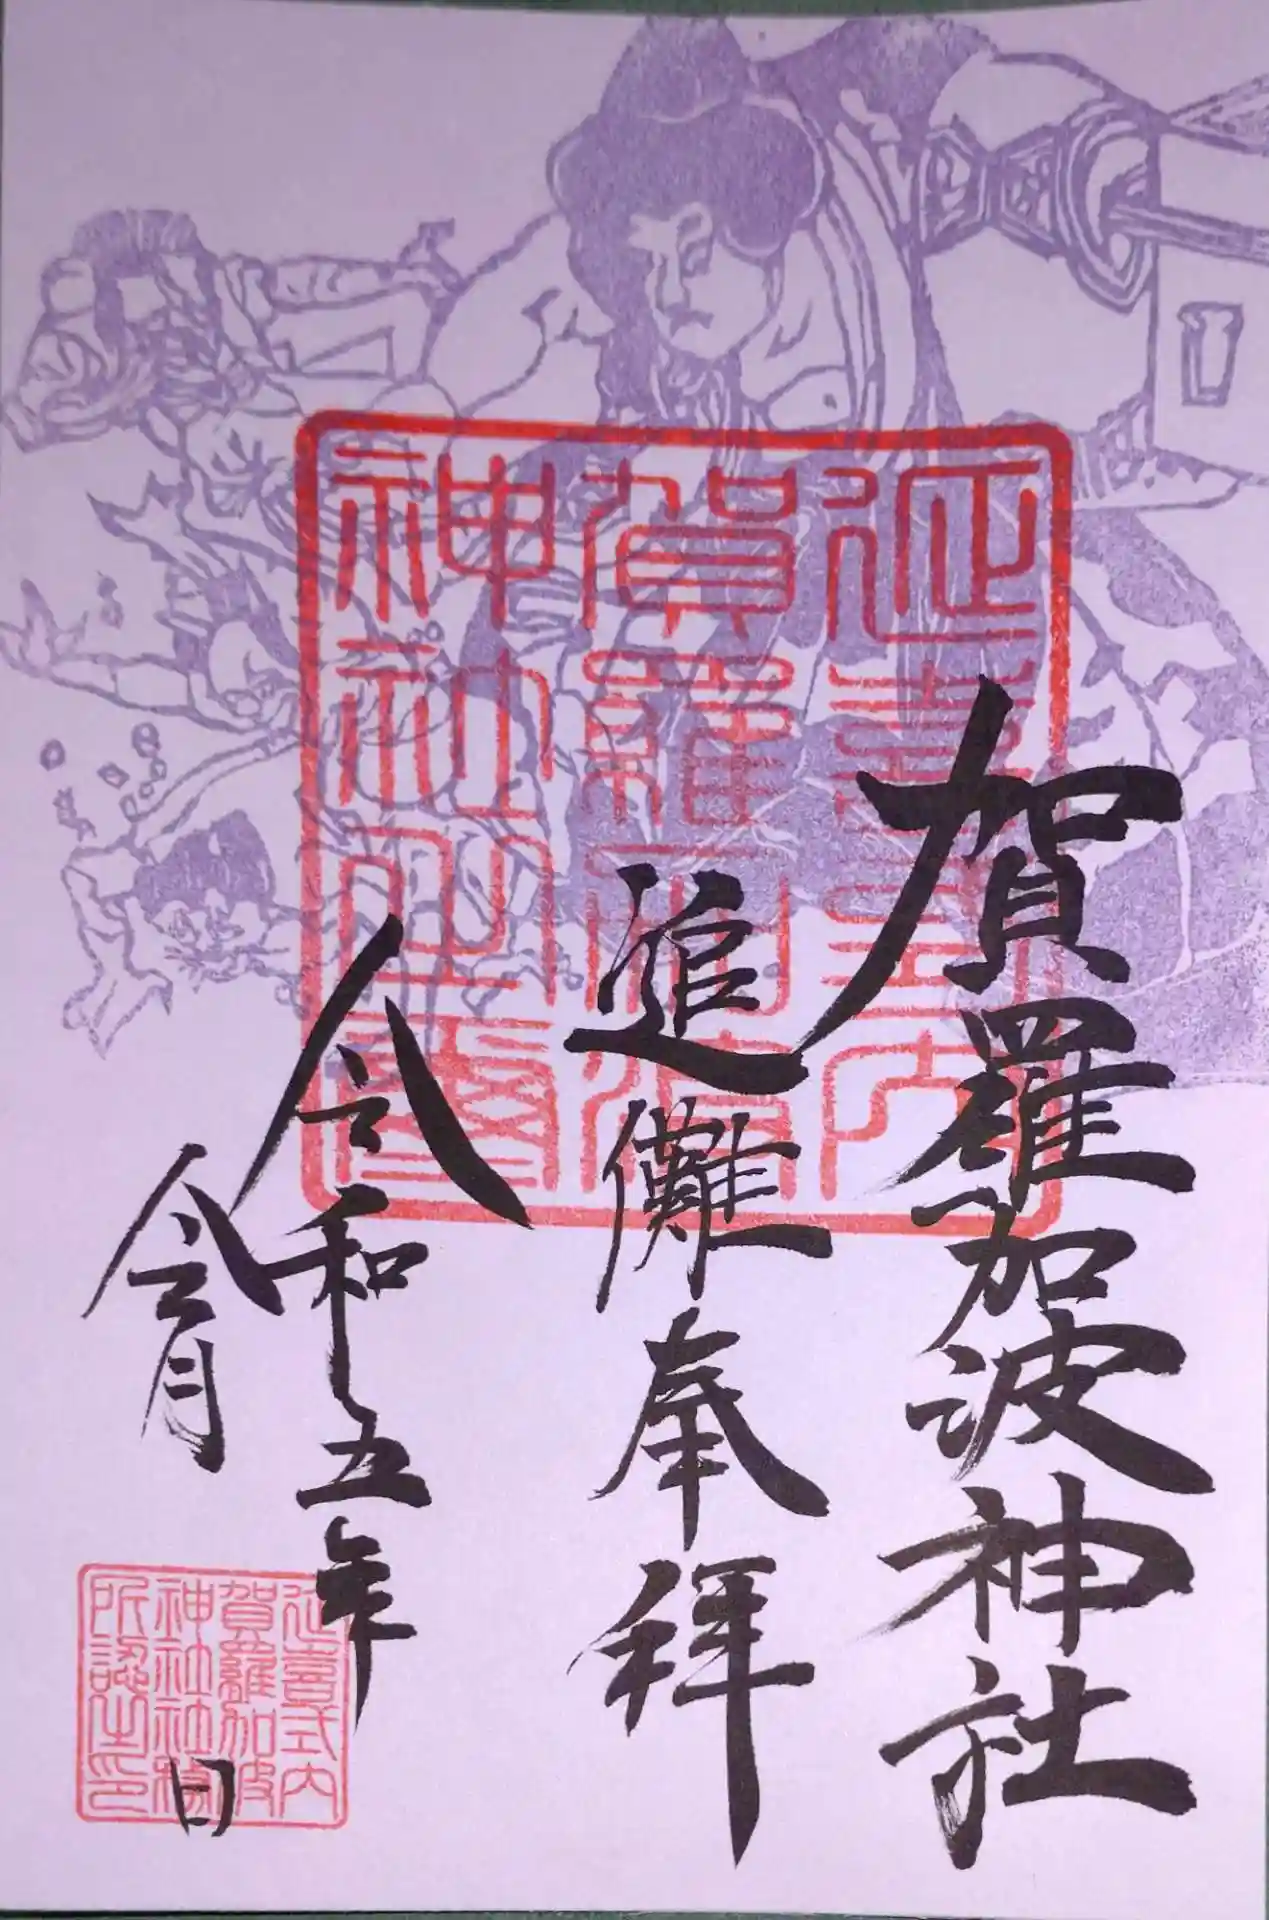 賀羅加波神社
追儺奉拝
令和五年
令月 日
延喜式内
賀羅加波
神社之璽
延喜式内
賀羅加波
神社社務
所認之印